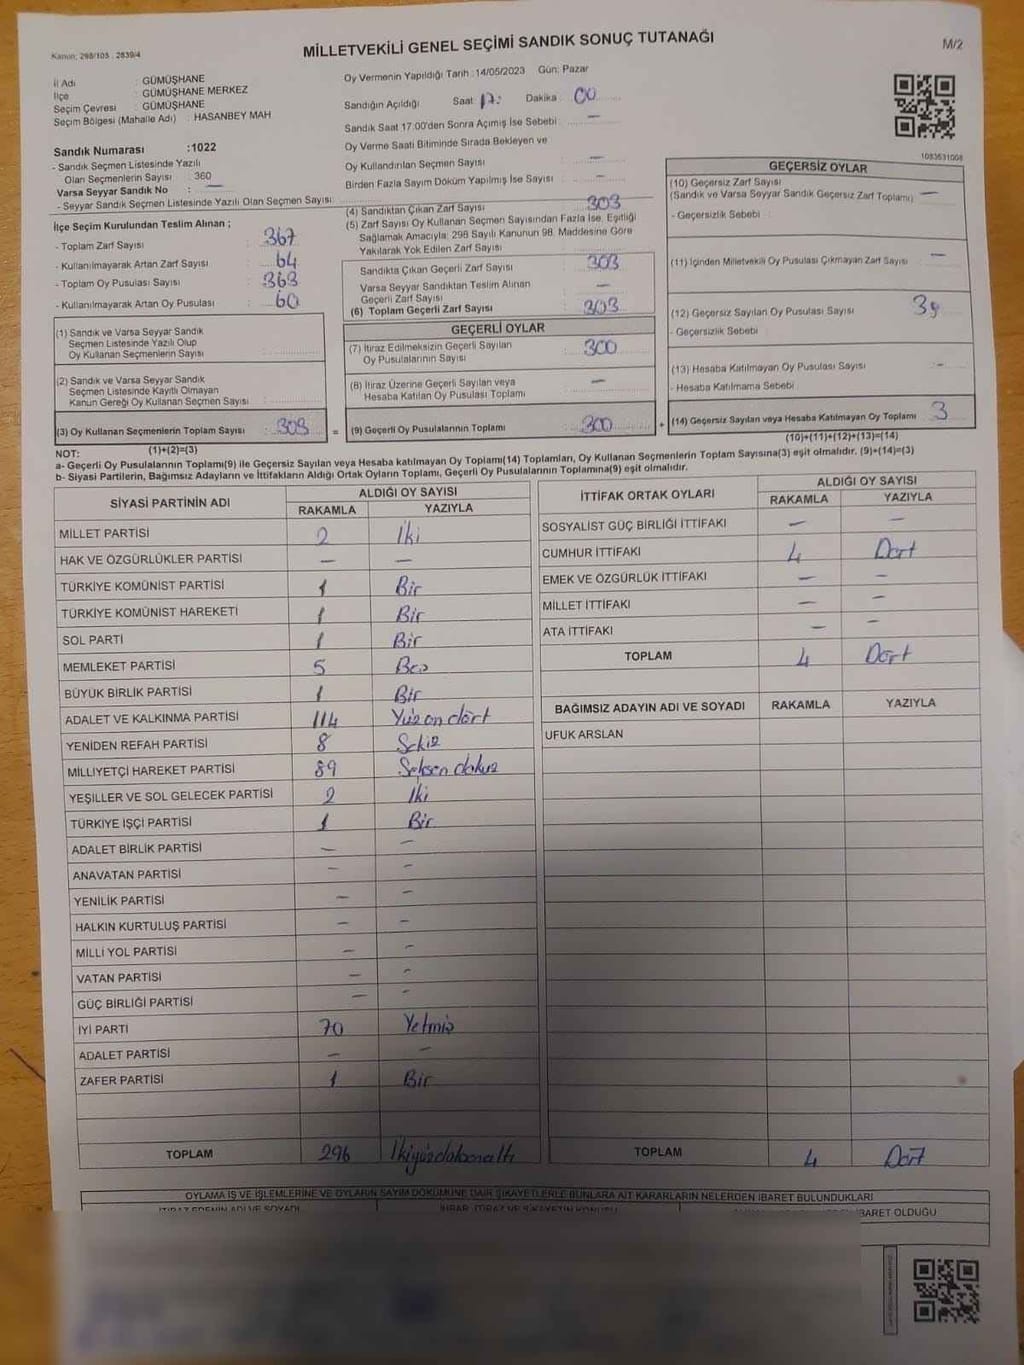 Kanun: 298/105 : 2839/4
MİLLETVEKİLİ GENEL SEÇİMİ SANDIK SONUÇ TUTANAĞI
M/2
İl Adı : GÜMÜŞHANE
İlçe : GÜMÜŞHANE MERKEZ
Seçim Çevresi : GÜMÜŞHANE
Seçim Bölgesi (Mahalle Adı) : HASANBEY MAH
Sandık Numarası :1022
- Sandık Seçmen Listesinde Yazılı
Olan Seçmenlerin Sayısı : 360
Varsa Seyyar Sandık No : —
- Seyyar Sandık Seçmen Listesinde Yazılı Olan Seçmen Sayısı
Oy Vermenin Yapıldığı Tarih : 14/05/2023 Gün: Pazar
Sandığın Açıldığı Saat 17: Dakika : 00
Sandık Saat 17:00'den Sonra Açılmış İse Sebebi : —
Oy Verme Saati Bitiminde Sırada Bekleyen ve
Oy Kullandırılan Seçmen Sayısı : —
Birden Fazla Sayım Döküm Yapılmış İse Sayısı : —
1083631008
İlçe Seçim Kurulundan Teslim Alınan ;
- Toplam Zarf Sayısı : 367
- Kullanılmayarak Artan Zarf Sayısı : 64
- Toplam Oy Pusulası Sayısı : 363
- Kullanılmayarak Artan Oy Pusulası : 60
(1) Sandık ve Varsa Seyyar Sandık
Seçmen Listesinde Yazılı Olup
Oy Kullanan Seçmenlerin Sayısı :
(2) Sandık ve Varsa Seyyar Sandık
Seçmen Listesinde Kayıtlı Olmayan
Kanun Gereği Oy Kullanan Seçmen Sayısı :
(3) Oy Kullanan Seçmenlerin Toplam Sayısı : 303
(1)+(2)=(3)
(4) Sandıktan Çıkan Zarf Sayısı : 303
(5) Zarf Sayısı Oy Kullanan Seçmen Sayısından Fazla İse, Eşitliği
Sağlamak Amacıyla; 298 Sayılı Kanunun 98. Maddesine Göre
Yakılarak Yok Edilen Zarf Sayısı
Sandıkta Çıkan Geçerli Zarf Sayısı : 303
Varsa Seyyar Sandıktan Teslim Alınan
Geçerli Zarf Sayısı : —
(6) Toplam Geçerli Zarf Sayısı : 303
GEÇERLİ OYLAR
(7) İtiraz Edilmeksizin Geçerli Sayılan
Oy Pusulalarının Sayısı : 300
(8) İtiraz Üzerine Geçerli Sayılan veya
Hesaba Katılan Oy Pusulası Toplamı : —
= (9) Geçerli Oy Pusulalarının Toplamı : 300 +
GEÇERSİZ OYLAR
(10) Geçersiz Zarf Sayısı
(Sandık ve Varsa Seyyar Sandık Geçersiz Zarf Toplamı) —
- Geçersizlik Sebebi :
(11) İçinden Milletvekili Oy Pusulası Çıkmayan Zarf Sayısı : —
(12) Geçersiz Sayılan Oy Pusulası Sayısı : 3
- Geçersizlik Sebebi :
(13) Hesaba Katılmayan Oy Pusulası Sayısı : —
- Hesaba Katılmama Sebebi :
(14) Geçersiz Sayılan veya Hesaba Katılmayan Oy Toplamı : 3
(10)+(11)+(12)+(13)=(14)
NOT:
a- Geçerli Oy Pusulalarının Toplamı(9) ile Geçersiz Sayılan veya Hesaba katılmayan Oy Toplamı(14) Toplamları, Oy Kullanan Seçmenlerin Toplam Sayısına(3) eşit olmalıdır. (9)+(14)=(3)
b- Siyasi Partilerin, Bağımsız Adayların ve İttifakların Aldığı Ortak Oyların Toplamı, Geçerli Oy Pusulalarının Toplamına(9) eşit olmalıdır.
SİYASİ PARTİNİN ADI
ALDIĞI OY SAYISI
RAKAMLA YAZIYLA
MİLLET PARTİSİ 2 İki
HAK VE ÖZGÜRLÜKLER PARTİSİ — —
TÜRKİYE KOMÜNİST PARTİSİ 1 Bir
TÜRKİYE KOMÜNİST HAREKETİ 1 Bir
SOL PARTİ 1 Bir
MEMLEKET PARTİSİ 5 Beş
BÜYÜK BİRLİK PARTİSİ 1 Bir
ADALET VE KALKINMA PARTİSİ 114 Yüz on dört
YENİDEN REFAH PARTİSİ 8 Sekiz
MİLLİYETÇİ HAREKET PARTİSİ 89 Seksen dokuz
YEŞİLLER VE SOL GELECEK PARTİSİ 2 İki
TÜRKİYE İŞÇİ PARTİSİ 1 Bir
ADALET BİRLİK PARTİSİ — —
ANAVATAN PARTİSİ — —
YENİLİK PARTİSİ — —
HALKIN KURTULUŞ PARTİSİ — —
MİLLİ YOL PARTİSİ — —
VATAN PARTİSİ — —
GÜÇ BİRLİĞİ PARTİSİ — —
İYİ PARTİ 70 Yetmiş
ADALET PARTİSİ — —
ZAFER PARTİSİ 1 Bir
TOPLAM 296 İkiyüzdoksanaltı
İTTİFAK ORTAK OYLARI
ALDIĞI OY SAYISI
RAKAMLA YAZIYLA
SOSYALİST GÜÇ BİRLİĞİ İTTİFAKI — —
CUMHUR İTTİFAKI 4 Dört
EMEK VE ÖZGÜRLÜK İTTİFAKI — —
MİLLET İTTİFAKI — —
ATA İTTİFAKI — —
TOPLAM 4 Dört
BAĞIMSIZ ADAYIN ADI VE SOYADI RAKAMLA YAZIYLA
UFUK ARSLAN
TOPLAM 4 Dört
OYLAMA İŞ VE İŞLEMLERİNE VE OYLARIN SAYIM DÖKÜMÜNE DAİR ŞİKAYETLERLE BUNLARA AİT KARARLARIN NELERDEN İBARET BULUNDUKLARI
İTİRAZ EDENİN ADI VE SOYADI
İHBAR, İTİRAZ VE ŞİKAYETİN KONUSU
İBARET OLDUĞU